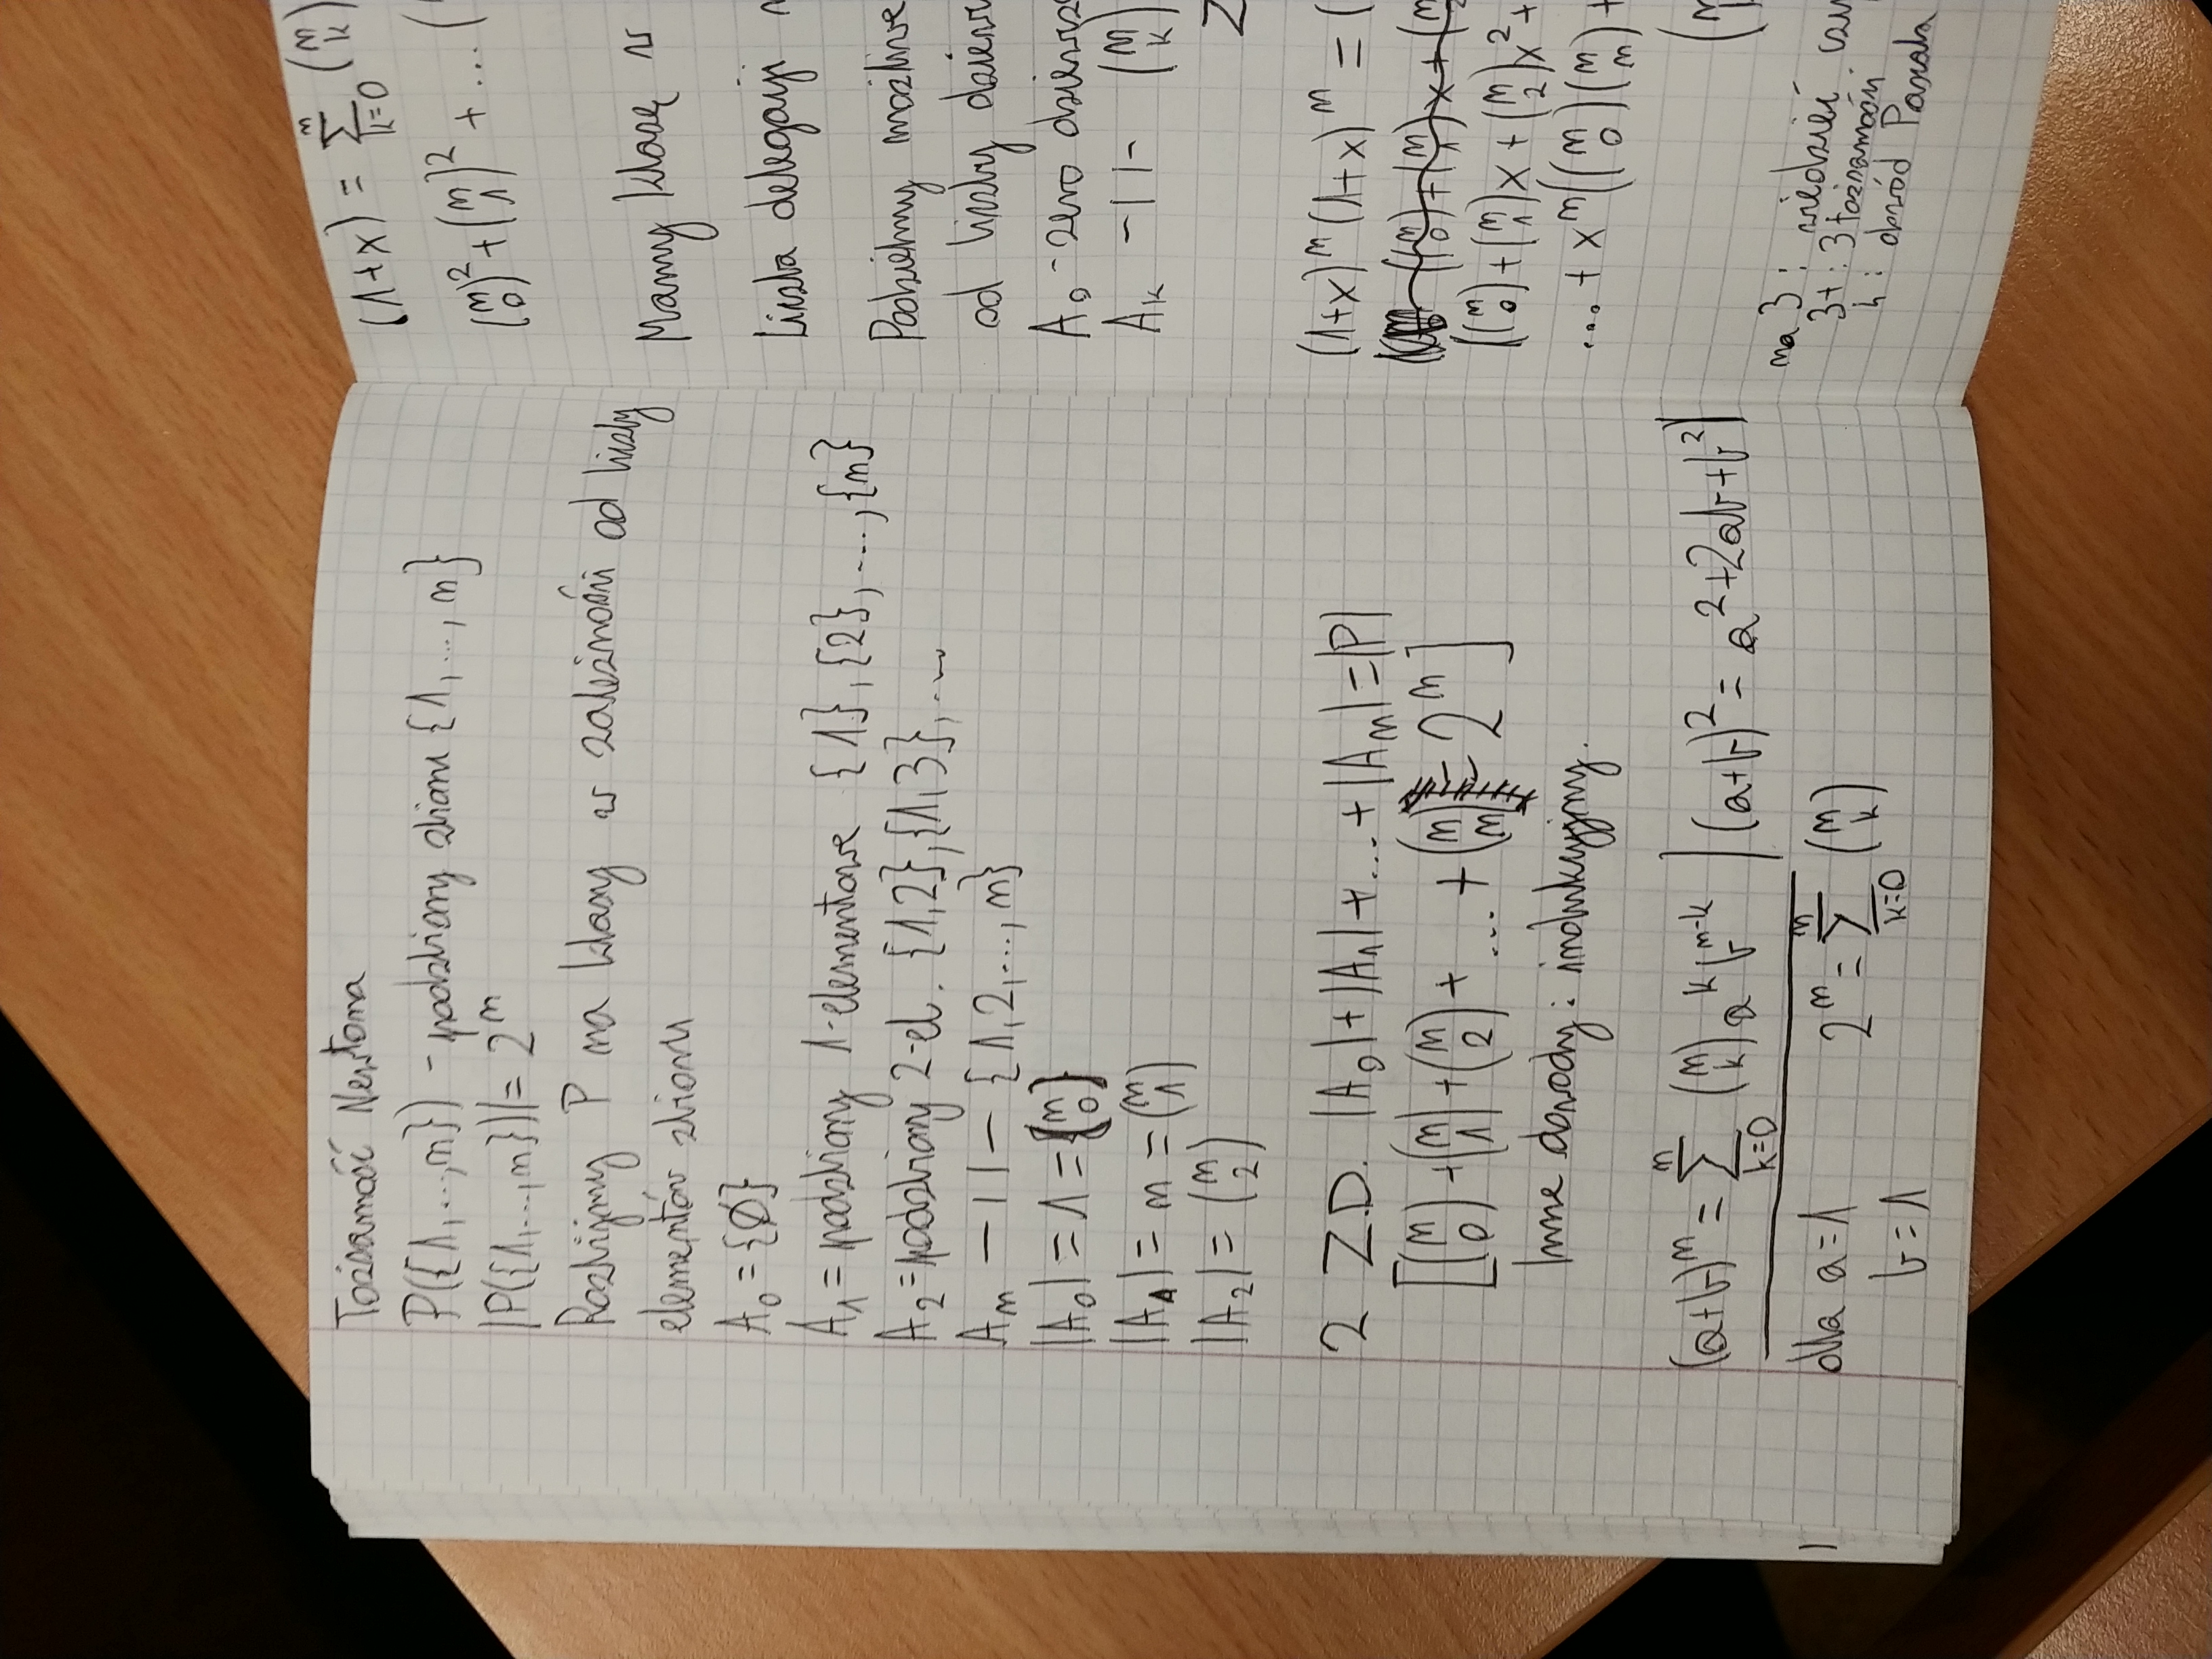 Tożsamość Newtona
P({1,...,n}) - podzbiory zbioru {1,...,n}
|P({1,...,n})| = 2^n
Rozbijmy P na klasy w zależności od liczby
elementów zbioru
A_0 = {∅}
A_1 = podzbiory 1-elementowe {1},{2},...,{n}
A_2 = podzbiory 2-el. {1,2},{1,3},...
A_n -||- {1,2,...,n}
|A_0| = 1 = (n 0)
|A_1| = n = (n 1)
|A_2| = (n 2)
2 Z.D. |A_0|+|A_1|+...+|A_n|=|P|
[(n 0)+(n 1)+(n 2)+...+(n n) = 2^n]
Inne dowody: indukcyjny.
(a+b)^n = ∑_{k=0}^{n} (n k) a^k b^{n-k} | (a+b)^2 = a^2+2ab+b^2|
dla a=1 2^n = ∑_{k=0}^{n} (n k)
b=1
(1+x) = ∑_{k=0}^{n} (n k)
(n 0)^2+(n 1)^2+...(
Mamy klasę w
Liczba delegacji
Podzielmy możliwe
od liczby
A_0 - zero
A_k -||- (n k)
Z
(1+x)^n (1+x)^n = (
((n 0)+(n 1)x+(n 2)x^2+
...+x^n((n 0)(n n)+
na 3: wiedzieć
3+: 3 tożsamości
4: dowód Pascala